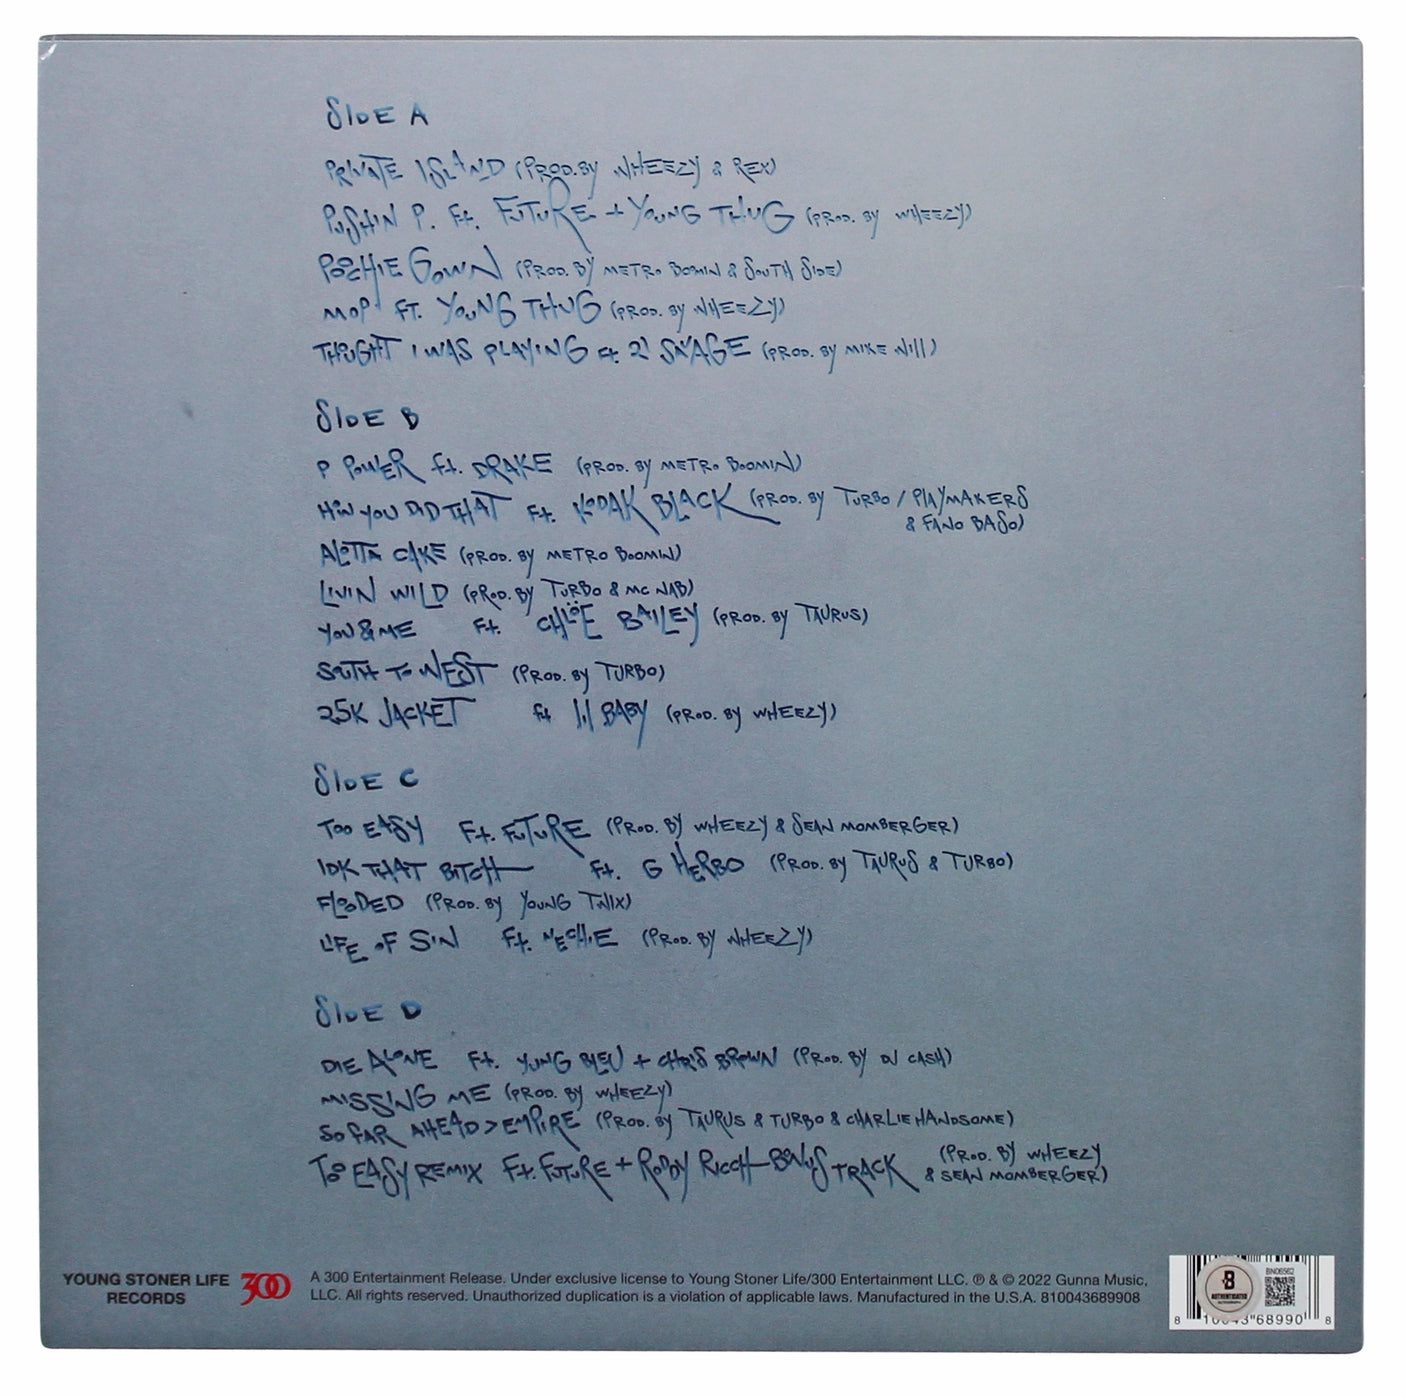 SIDE A
PRIVATE ISLAND (PROD. BY WHEEZY & REX)
PUSHIN P. Ft. FUTURE + YOUNG THUG (PROD. BY WHEEZY)
POOCHIE GOWN (PROD. BY METRO BOOMIN & SOUTH SIDE)
MOP FT. YOUNG THUG (PROD. BY WHEEZY)
THOUGHT I WAS PLAYING Ft. 21 SAVAGE (PROD. BY MIKE Will)
SIDE B
P POWER Ft. DRAKE (PROD. BY METRO BOOMIN)
HOW YOU DID THAT Ft. KODAK BLACK (PROD. BY TURBO / PLAYMAKERS
& FANO BASO)
ALOTTA CAKE (PROD. BY METRO BOOMIN)
LIVIN WILD (PROD. BY TURBO & MC NAB)
YOU & ME Ft. CHLÖE BAILEY (PROD. BY TAURUS)
SOUTH TO WEST (PROD. BY TURBO)
25K JACKET Ft lil BABY (PROD. BY WHEEZY)
SIDE C
TOO EASY Ft. FUTURE (PROD. BY WHEEZY & SEAN MOMBERGER)
IDK THAT BITCH Ft. G HERBO (PROD. BY TAURUS & TURBO)
FLOODED (PROD. BY YOUNG TWIX)
LIFE OF SIN Ft. NECHIE (PROD. BY WHEEZY)
SIDE D
DIE ALONE Ft. YUNG BLEU + CHRIS BROWN (PROD. BY DJ CASH)
MISSING ME (PROD. BY WHEEZY)
SO FAR AHEAD > EMPIRE (PROD. BY TAURUS & TURBO & CHARLIE HANDSOME)
TOO EASY REMIX Ft. FUTURE + RODDY RICCH - BONUS TRACK (PROD. BY WHEEZY
& SEAN MOMBERGER)
YOUNG STONER LIFE
RECORDS
300
A 300 Entertainment Release. Under exclusive license to Young Stoner Life/300 Entertainment LLC. ℗ & © 2022 Gunna Music,
LLC. All rights reserved. Unauthorized duplication is a violation of applicable laws. Manufactured in the U.S.A. 810043689908
BN06562
B
AUTHENTICATED
8 10043"68990 8